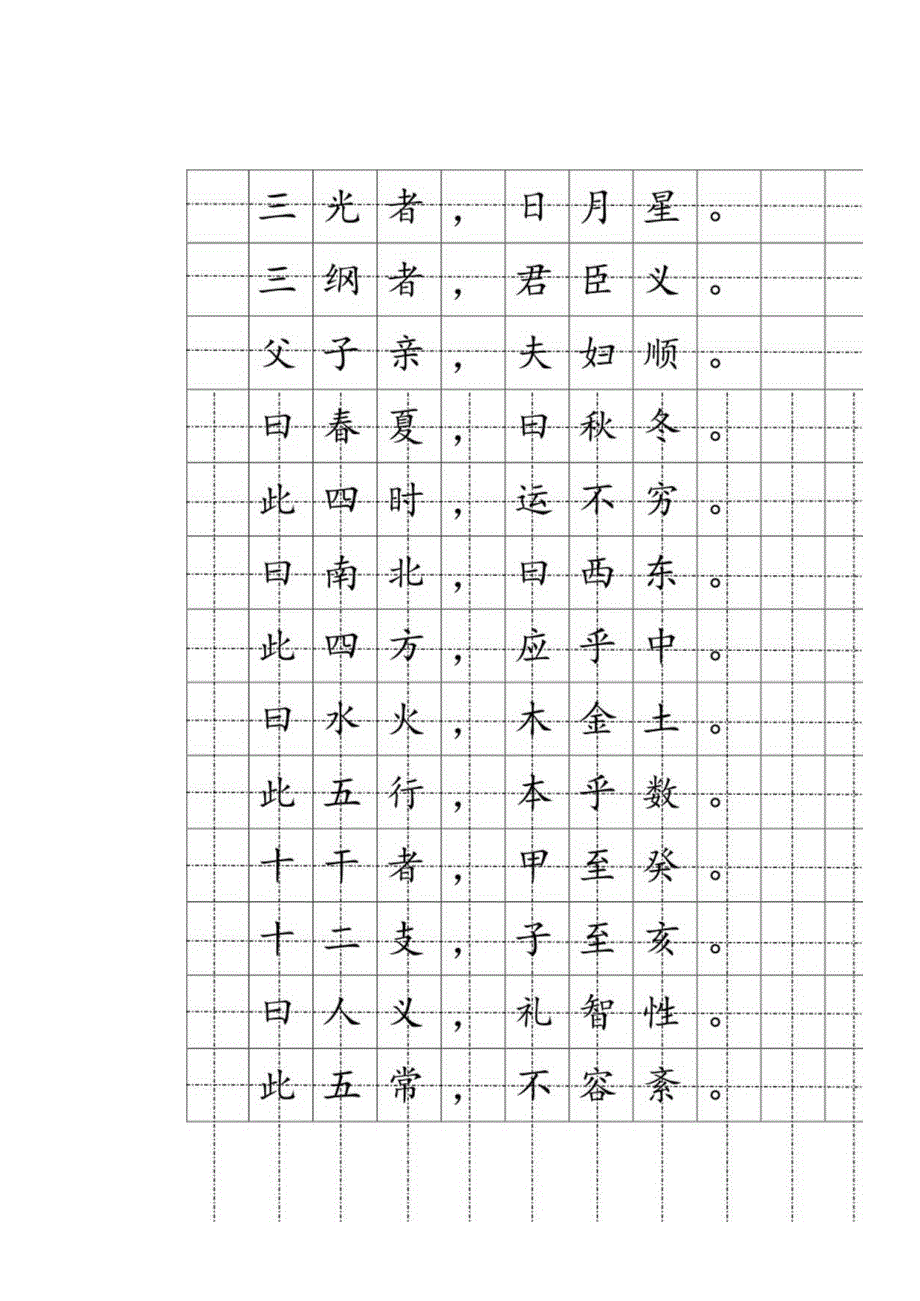 三光者，日月星。
三纲者，君臣义。
父子亲，夫妇顺。
曰春夏，曰秋冬。
此四时，运不穷。
曰南北，曰西东。
此四方，应乎中。
曰水火，木金土。
此五行，本乎数。
十干者，甲至癸。
十二支，子至亥。
曰人义，礼智性。
此五常，不容紊。